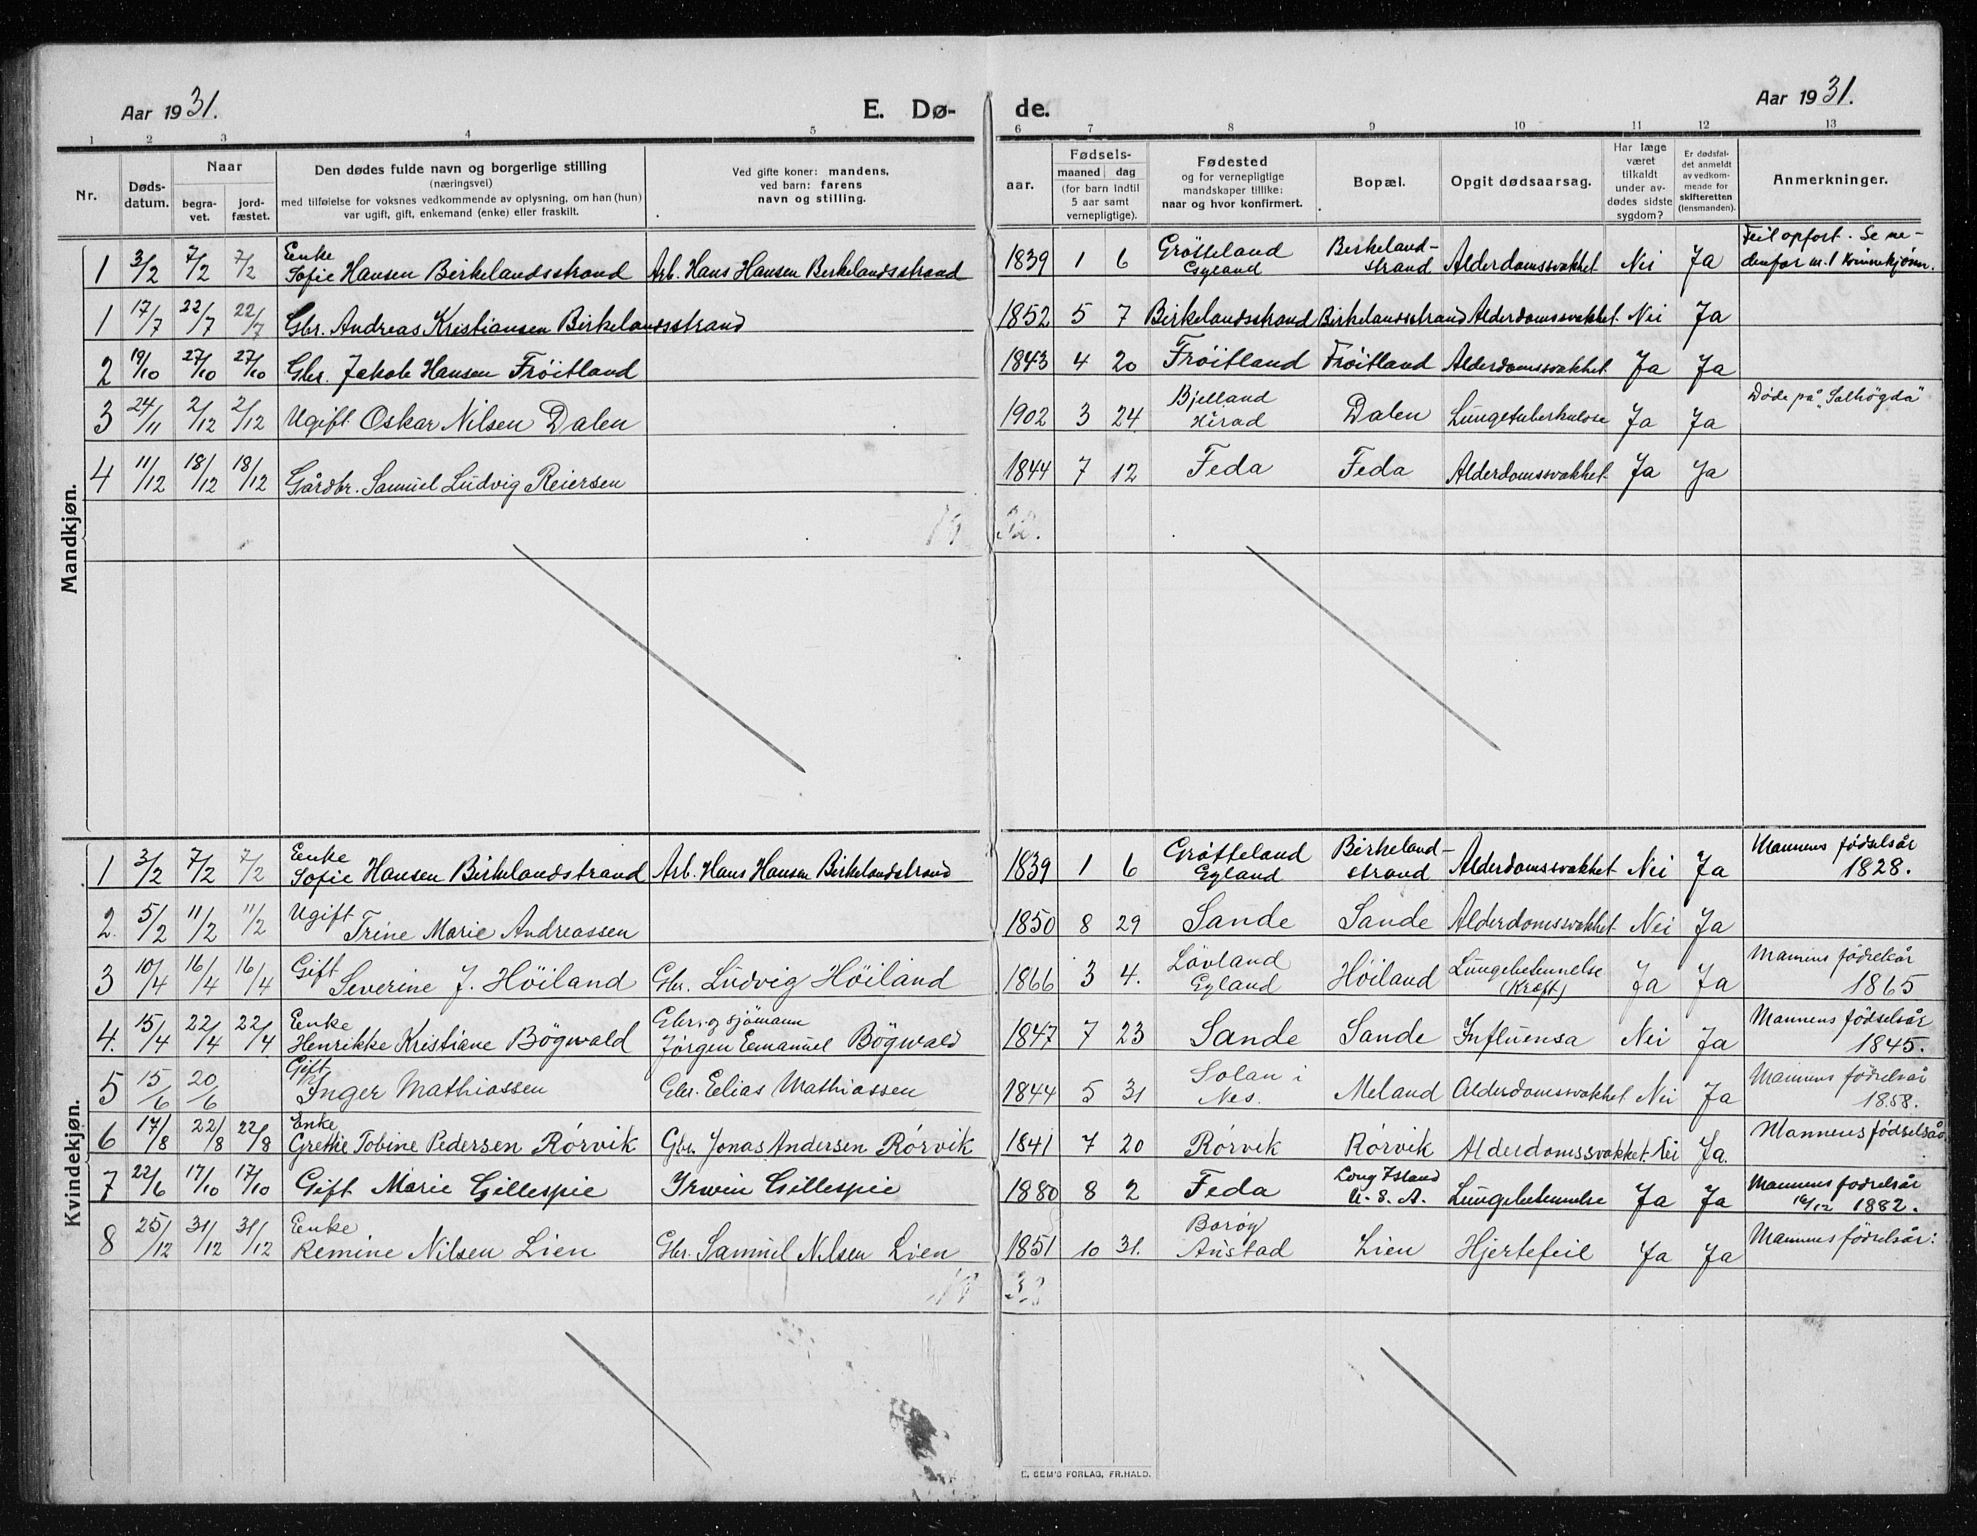 Aar 1931. E. Dø- de. Aar 1931.
1 2 3 4 5 6 7 8 9 10 11 12 13
Nr. Døds-datum. Naar begra-vet. jord-fæstet. Den dødes fulde navn og borgerlige stilling (næringsvei) med tilføielse for voksnes vedkommende av oplysning, om han (hun) var ugift, gift, enkemand (enke) eller fraskilt. Ved gifte koner: mandens, ved barn: farens navn og stilling. aar. Fødsels- maaned dag (for barn indtil 5 aar samt vernepligtige). Fødested og for vernepligtige mandskaper tillike: naar og hvor konfirmert. Bopæl. Opgit dødsaarsag. Har læge været tilkaldt under av-dødes sidste sygdom? Er dødsfal-det anmeldt av vedkom-mende for skifteretten (lensmanden). Anmerkninger.
Mandkjøn.
1 3/2 7/2 7/2 Enke Sofie Hansen Birkelandsstrand Arb. Hans Hansen Birkelandsstrand 1839 1 6 Grøtteland Egyland Birkeland-strand Alderdomssvakhet Nei Ja Feil opført. Se ne-denfor nr. 1 kvinnekjønn.
1 17/7 22/7 22/7 Gbr. Andreas Kristiansen Birkelandsstrand 1852 5 7 Birkelandsstrand Birkelandsstrand Alderdomssvakhet Nei Ja
2 19/10 27/10 27/10 Gbr. Jakob Hansen Frøitland 1843 4 20 Frøitland Frøitland Alderdomssvakhet Ja Ja
3 24/11 2/12 2/12 Ugift Oskar Nilsen Dalen 1902 3 24 Bjelland Herad Dalen Lungetuberkulose Ja Ja Døde på "Solhøgda"
4 11/12 18/12 18/12 Gårdbr. Samuel Ludvig Reiersen 1844 7 12 Feda Feda Alderdomssvakhet Ja Ja
19 32.
Kvindekjøn.
1 3/2 7/2 7/2 Enke Sofie Hansen Birkelandstrand Arb. Hans Hansen Birkelandstrand 1839 1 6 Grøtteland Eyland Birkeland-strand Alderdomssvakhet Nei Ja Mannens fødselsår 1828.
2. 5/2 11/2 11/2 Ugift Trine Marie Andreassen 1850 8 29 Sande Sande Alderdomssvakhet Nei Ja
3 10/4 16/4 16/4 Gift Severine J. Høiland Gbr. Ludvig Høiland 1866 3 4. Løvland Eyland Høiland Lungebetennelse (Kreft) Ja Ja Mannens fødselsår 1865
4. 15/4 22/4 22/4 Enke Henrikke Kristiane Bøgwald Gbr. og sjømann Jørgen Emanuel Bøgwald 1847 7 23 Sande Sande Influensa Nei Ja Mannens fødselsår 1845.
5 15/6 20/6 Gift Inger Mathiassen Gbr. Elias Mathiassen 1844 5 31 Solan i Nes. Meland Alderdomssvakhet Nei Ja Mannens fødselsår 1858.
6 17/8 22/8 22/8 Enke Grethe Tobine Pedersen Rørvik Gbr. Jonas Andersen Rørvik 1841 7 20 Rørvik Rørvik Alderdomssvakhet. Nei Ja. Mannens fødselsår
7 22/6 17/10 17/10 Gift Marie Gillespie Irwin Gillespie 1880 8 2 Feda Long Island U.S.A. Lungebetennelse Ja Ja Mannens fødselsår 16/12 1882.
8 25/12 31/12 31/12 Enke Remine Nilsen Lien Gbr. Samuel Nilsen Lien 1851 10 31. Borøy Austad Lien Hjertefeil Ja Ja Mannens fødselsår:
E. SEM'S FORLAG, FR.HALD.